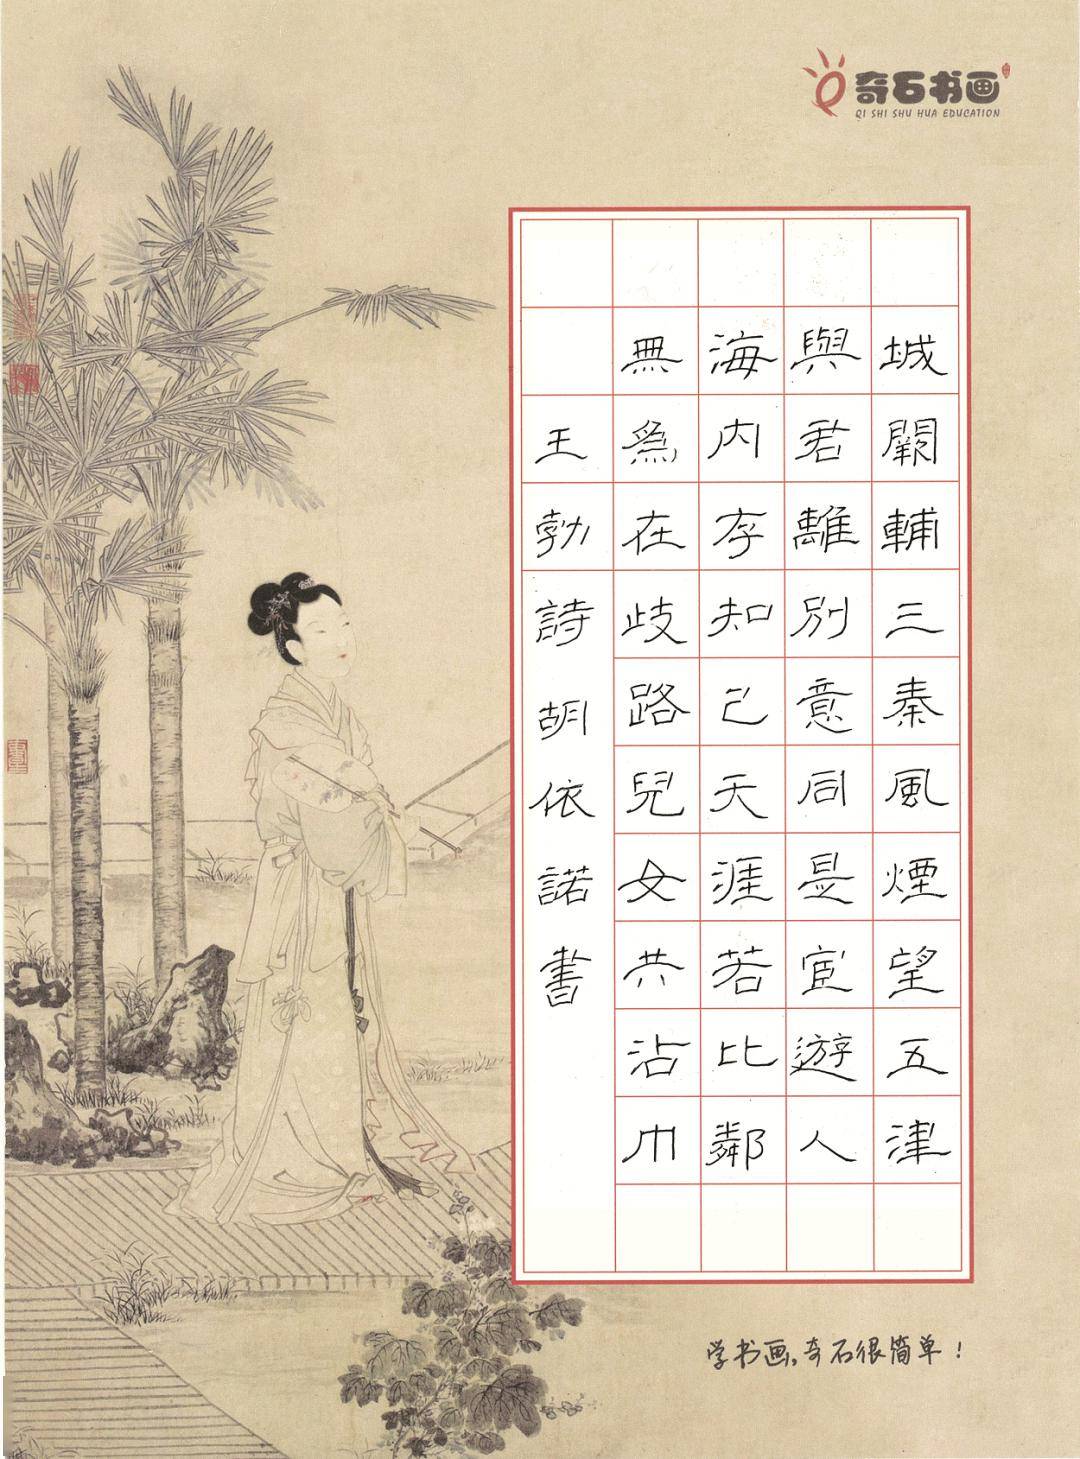 奇石书画
QI SHI SHU HUA EDUCATION
城闕輔三秦風煙望五津
與君離別意同是宦遊人
海内存知己天涯若比鄰
無爲在歧路兒女共沾巾
王勃詩胡依諾書
学书画,奇石很简单!